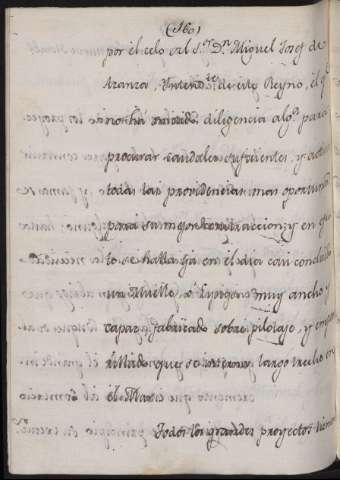 (160)
por el celo del S.r D.n Miguel Josef de
tranza Intend.te de este Reyno, el q.
no ha omitido diligencia alg.a para
procurar caudales suficientes, y
todas las providencias mas oportunas
para su mejor construccion; y en
to se halla ya en el dia casi concluido
un Muelle, muy ancho y
capaz, fabricado sobre pilotaje, y
rillado que se interna largo trecho en
el Mar.
Todos los grandes proyectos tienen